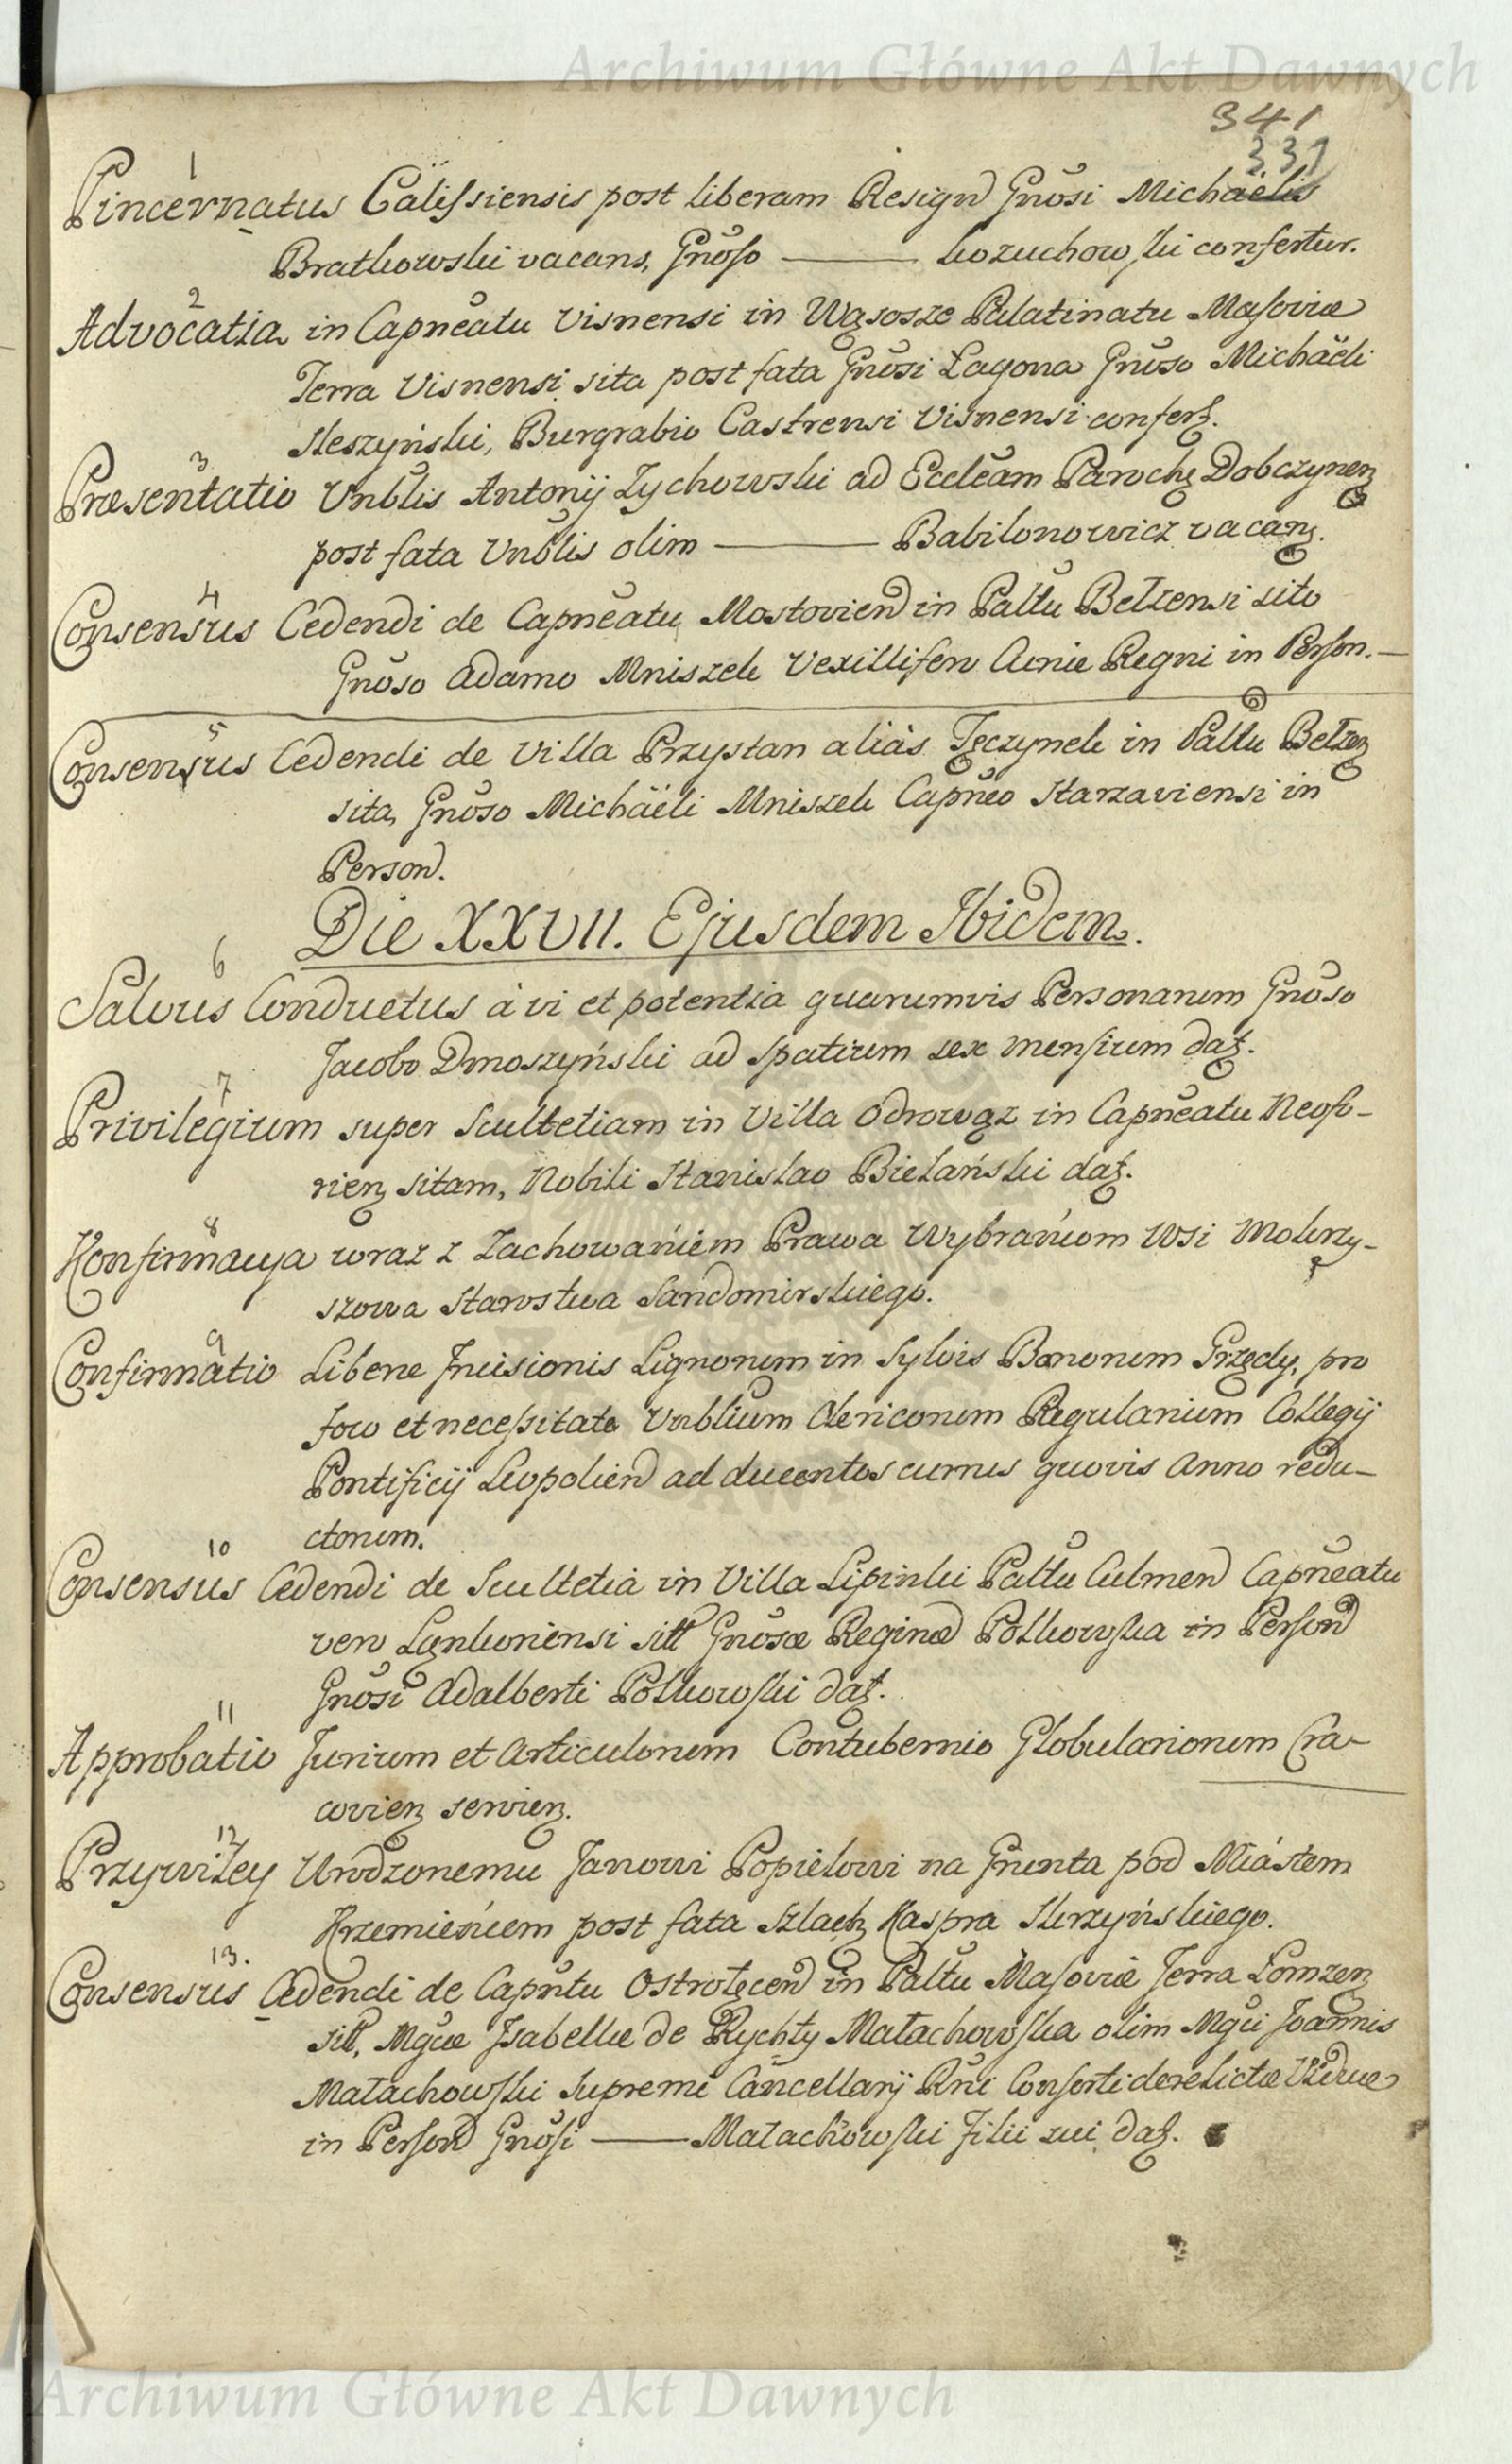 Archiwum Główne Akt Dawnych
341
331
1
Pincernatus Calissiensis post liberam Resign Gnosi Michaelis
Bratkowski vacans, Gnoso ——— kozuchowski confertur.
2
Advocatia in Capneatu Visnensi in Wąsosze Palatinatu Masoviæ
Terra Visnensi sita post fata Gnosi Lagona Gnoso Michaeli
Skeszyński, Burgrabio Castrensi Visnensi confert.
3
Præsentatio Vnblis Antonij Zychowski ad Eccleam Paroch Dobczynen
post fata Vnblis olim ——— Babilonowicz vacan.
4
Consensus Cedendi de Capneatu Mostovien in Paltu Belzensi sito
Gnoso Adamo Mniszek Vexillifero Curiæ Regni in Person.—
5
Consensus Cedendi de Villa Przystan aliàs Tęczynek in Paltu Belzen
sita, Gnoso Michaeli Mniszek Capneo Starzaviensi in
Person.
Die XXVII. Ejusdem Ibidem.
6
Salvus Conductus à vi et potentia quarumvis Personarum Gnoso
Jacobo Dmoszyński ad spatium sex mensium dat.
7
Privilegium super Scultetiam in Villa Odrowąz in Capneatu Neofo-
rien sitam, Nobili Stanislao Bielański dat.
8
Konfirmacya wraz z Zachowaniem Prawa Wybrańcom Wsi Mokrzy-
szowa Starostwa Sandomirskiego.
9
Confirmatio Liberæ Incisionis Lignorum in Sylvis Bonorum Grzędy, pro
foco et necessitate Vnblium Clericorum Regularium Collegij
Pontificij Leopolien ad ducentos currus quovis Anno redu-
ctorum.
10
Consensus Cedendi de Scultetia in Villa Lipinki Paltu Culmen Capneatu
vero Lęnkoriensi sitt Gnosæ Reginæ Połkowska in Person
Gnosi Adalberti Połkowski dat.
11
Approbatio Jurium et Articulorum Contubernio Globulariorum Cra-
covien servien.
12
Przywiley Urodzonemu Janowi Popielowi na Grunta pod Miástem
Krzemieńcem post fata Szlach Kaspra Skrzyńskiego.
13.
Consensus Cedendi de Capntu Ostrołęcen in Paltu Masoviæ Terra Lomzen
sitt, Mgcæ Isabellæ de Rychty Małachowska olim Mgci Joannis
Małachowski Supremi Cancellarij Rni Consorti derelictæ Viduæ
in Person Gnosi ——— Małachowski Filii sui dat.
Archiwum Główne Akt Dawnych